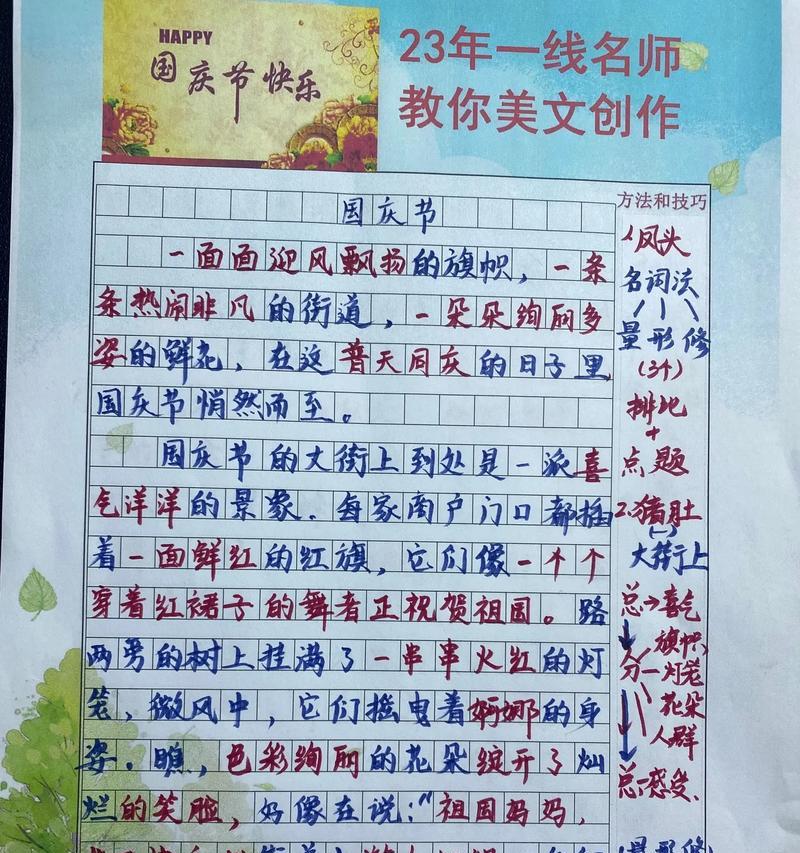 HAPPY
国庆节快乐
23年一线名师
教你美文创作
方法和技巧
国庆节
一面面迎风飘扬的旗帜，一条
条热闹非凡的街道，一朵朵绚丽多
姿的鲜花，在这普天同庆的日子里，
国庆节悄然而至。
国庆节的大街上到处是一派喜
气洋洋的景象．每家商户门口都插
着一面鲜红的红旗，它们像一个个
穿着红裙子的舞者正祝贺祖国。路
两旁的树上挂满了一串串火红的灯
笼，微风中，它们摇曳着婀娜的身
姿．瞧，色彩绚丽的花朵绽开了灿
烂的笑脸，好像在说："祖国妈妈，
1.凤头
名词法
量形修
(3个)
排比
+
点题
2.猪肚
(一)
大街上
总→喜气
旗帜
分－灯笼
花朵
人群
总－感受．
(量形修